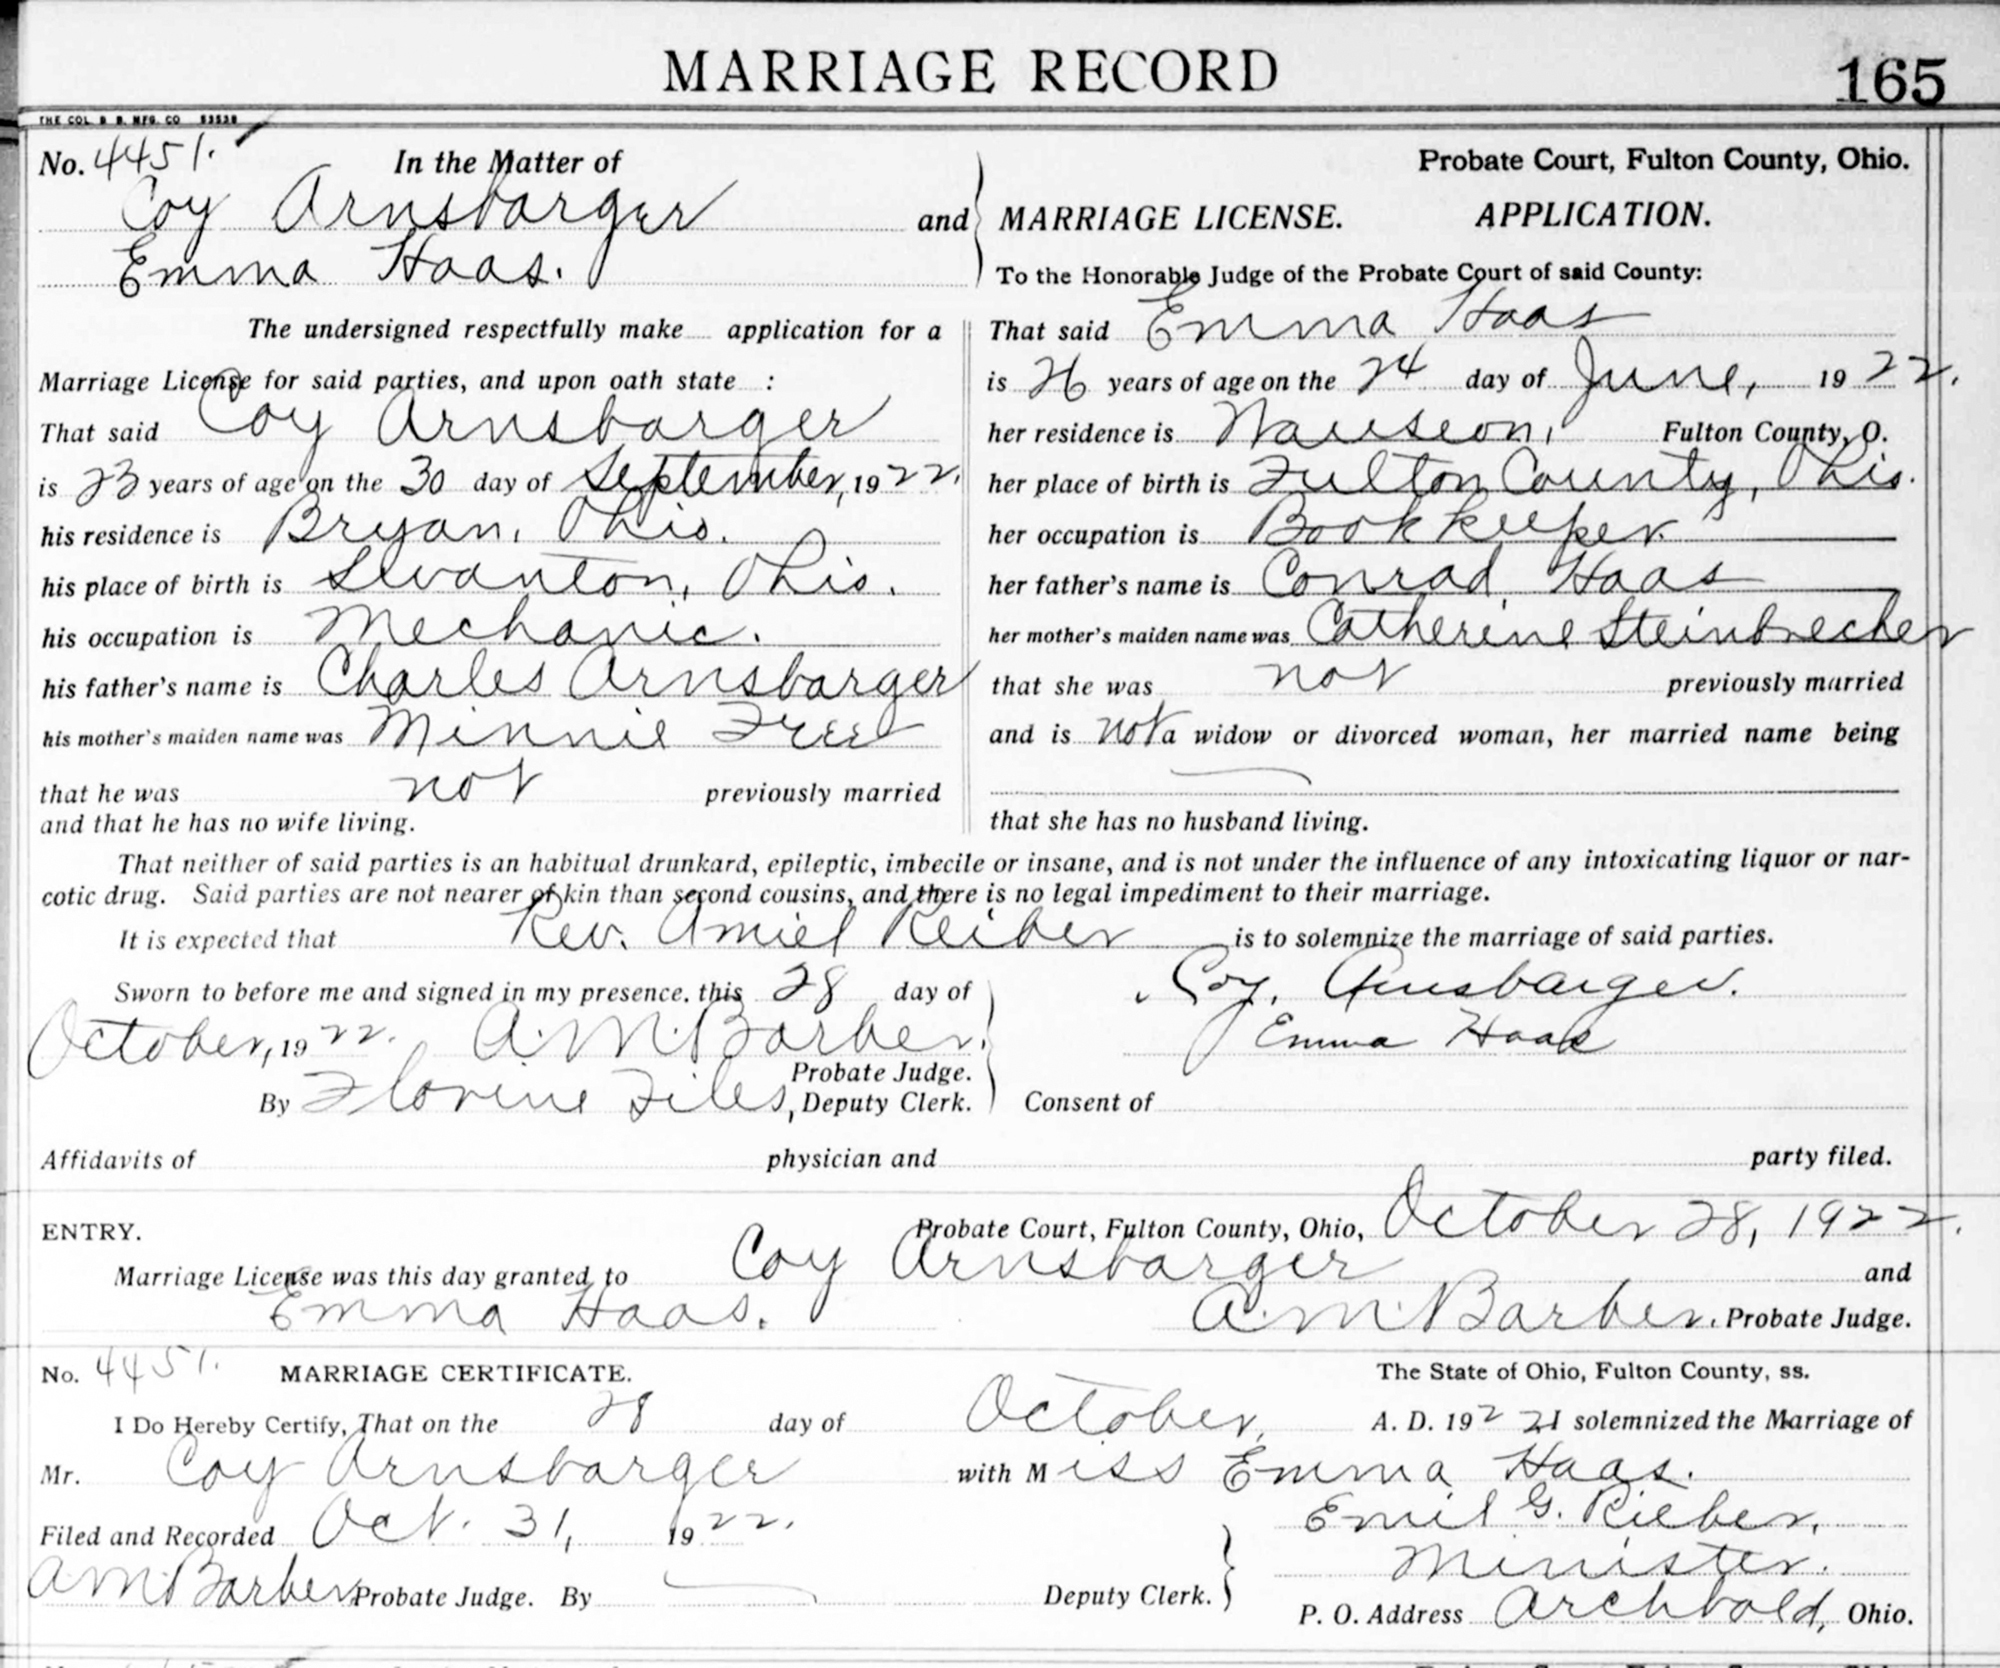 MARRIAGE RECORD 165
THE COL. B. B. MFG. CO 53538
No. 4451. In the Matter of
Coy Arnsbarger and
Emma Haas.
Probate Court, Fulton County, Ohio.
MARRIAGE LICENSE. APPLICATION.
To the Honorable Judge of the Probate Court of said County:
The undersigned respectfully make application for a
Marriage License for said parties, and upon oath state :
That said Coy Arnsbarger
is 23 years of age on the 30 day of September, 1922.
his residence is Bryan, Ohio.
his place of birth is Swanton, Ohio.
his occupation is Mechanic.
his father's name is Charles Arnsbarger
his mother's maiden name was Minnie Free
that he was not previously married
and that he has no wife living.
That said Emma Haas
is 26 years of age on the 24 day of June, 1922.
her residence is Wauseon, Fulton County, O.
her place of birth is Fulton County, Ohio.
her occupation is Bookkeeper.
her father's name is Conrad Haas
her mother's maiden name was Catherine Steinbrecher
that she was not previously married
and is not a widow or divorced woman, her married name being
that she has no husband living.
That neither of said parties is an habitual drunkard, epileptic, imbecile or insane, and is not under the influence of any intoxicating liquor or nar-
cotic drug. Said parties are not nearer of kin than second cousins, and there is no legal impediment to their marriage.
It is expected that Rev. Amiel Reiber is to solemnize the marriage of said parties.
Sworn to before me and signed in my presence, this 28 day of
October, 1922. A. M. Barber.
Probate Judge.
By Florine Files, Deputy Clerk.
Coy. Arnsbarger.
Emma Haas
Consent of
Affidavits of physician and party filed.
ENTRY. Probate Court, Fulton County, Ohio, October 28, 1922.
Marriage License was this day granted to Coy Arnsbarger and
Emma Haas. A. M. Barber. Probate Judge.
No. 4451. MARRIAGE CERTIFICATE. The State of Ohio, Fulton County, ss.
I Do Hereby Certify, That on the 28 day of October, A. D. 1922 I solemnized the Marriage of
Mr. Coy Arnsbarger with Miss Emma Haas.
Filed and Recorded Oct. 31, 1922.
Emil G. Rieber,
Minister.
A M Barber Probate Judge. By Deputy Clerk.
P. O. Address Archbold, Ohio.